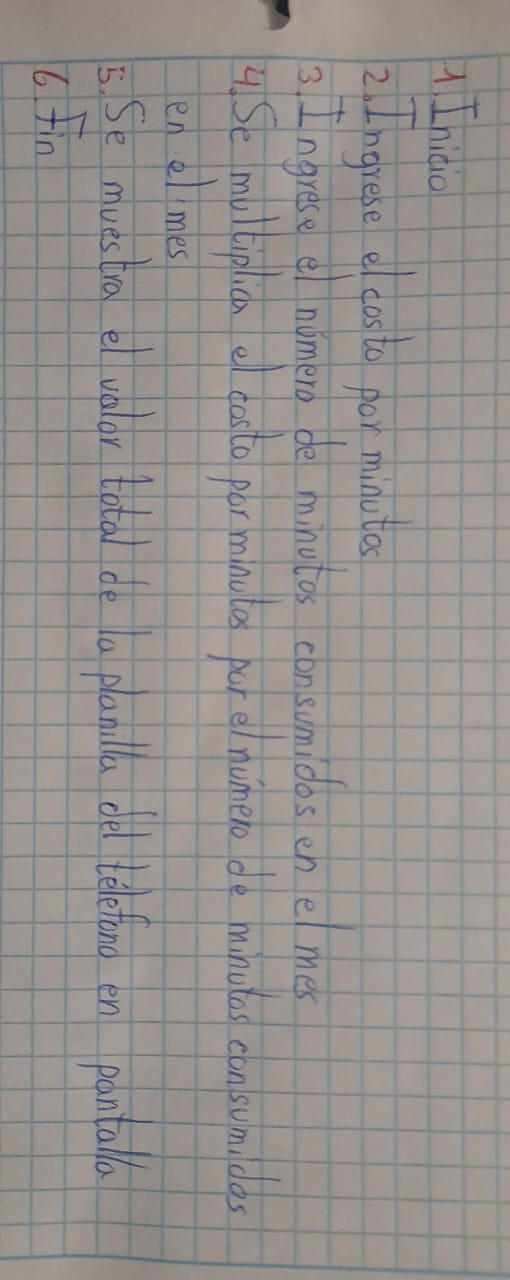 1. Inicio
2. Ingrese el costo por minutos
3. Ingrese el número de minutos consumidos en el mes
4. Se multiplica el costo por minutos por el número de minutos consumidos
en el mes
5. Se muestra el valor total de la planilla del télefono en pantalla
6. Fin